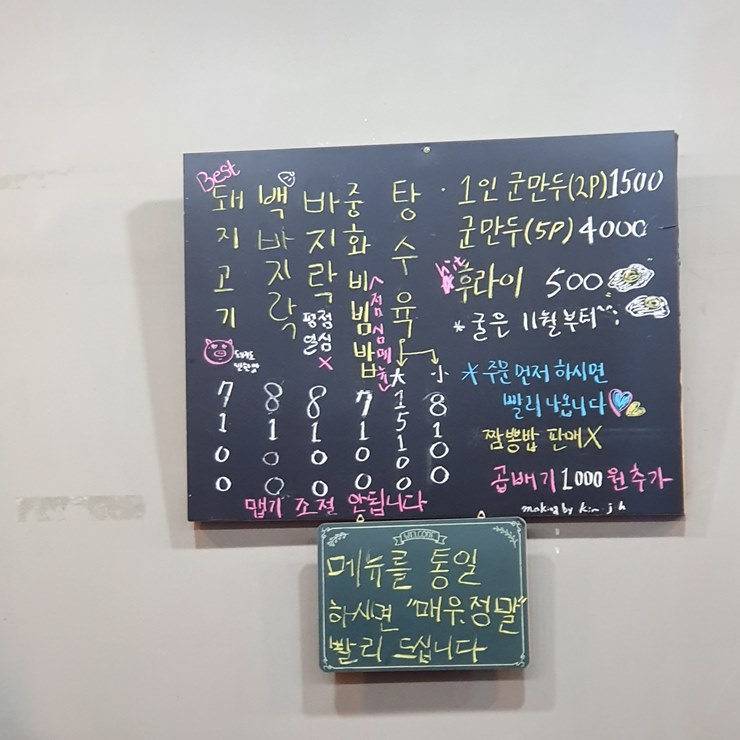 Best
돼지고기
7100
백바지락
8100
바지락
평점
열심
X
8100
중화비빔밥
점심매운
7100
탕수육
大
15100
小
8100
· 1인 군만두(2P) 1500
군만두(5P) 4000
hit
후라이 500
* 굴은 11월부터^^;
* 주문 먼저 하시면
빨리 나옵니다
짬뽕밥 판매X
곱배기 1000원추가
맵기 조절 안됩니다
making by kim. j. h
WELCOME
메뉴를 통일
하시면 "매우.정말"
빨리 드십니다